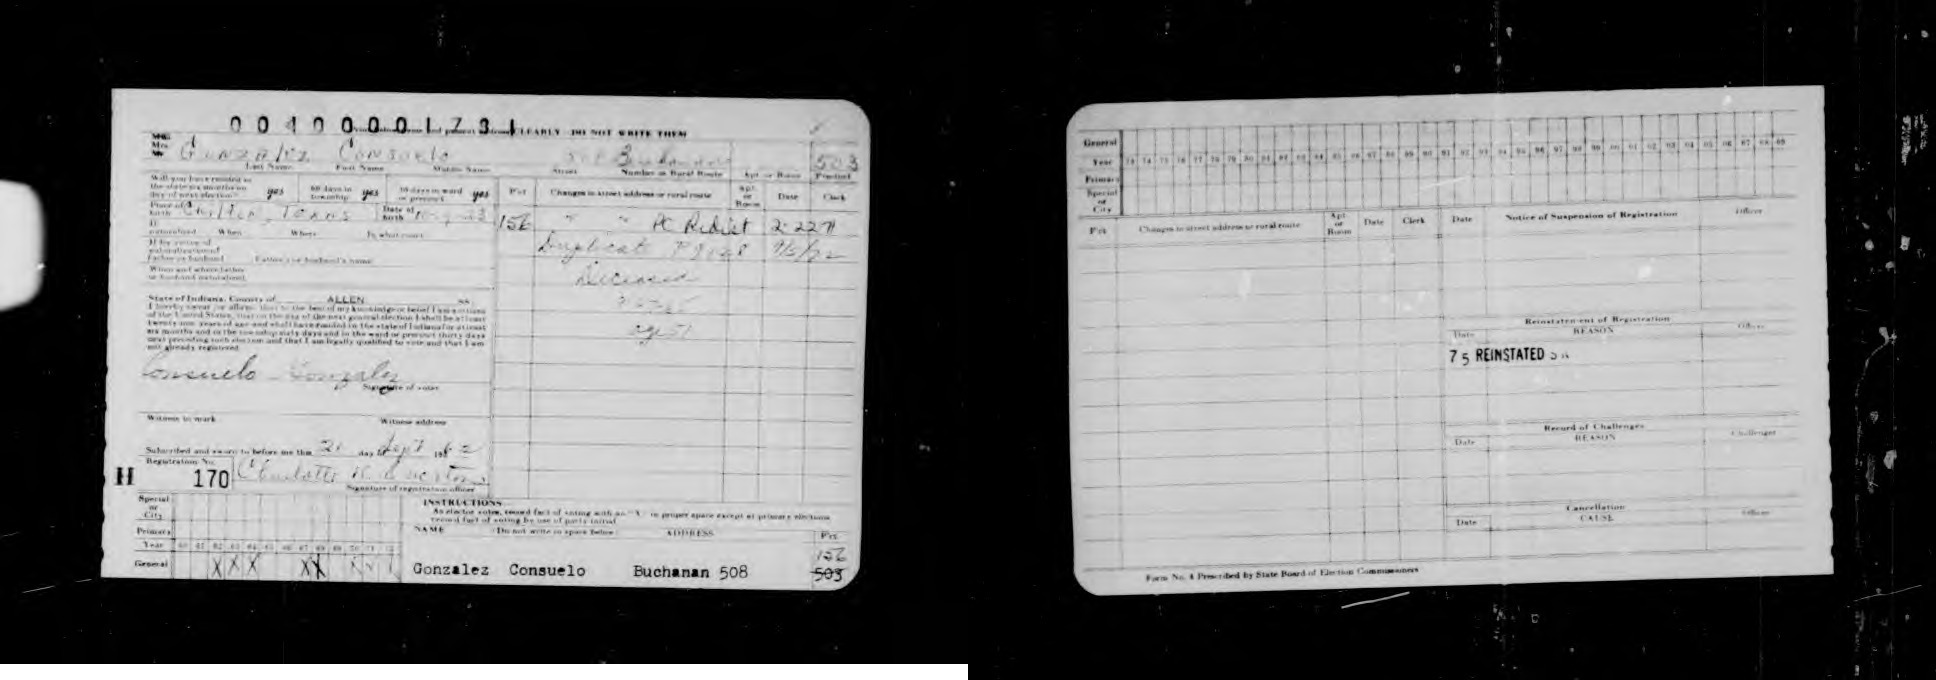 00400001731
CLEARLY - DO NOT WRITE THEM
Miss
Mrs.
Mr.
Gonzalez Consuelo 508 Buchanan 503
Last Name First Name Middle Name Street Number or Rural Route Apt. or Room Precinct
Will you have resided in
the state six months on
day of next election? yes 60 days in
township yes 30 days in ward
or precinct yes
Pct Changes in street address or rural route Apt.
or
Room Date Clerk
Place of
birth Texas Date of
birth
156 " " PC Redist 2-22-71
If
naturalized When Where In what court
Duplicat 9/5/72
If by virtue of
naturalization of
father or husband Father's or husband's name
When and where father
or husband naturalized
Deceased
State of Indiana, County of ALLEN SS
I hereby swear (or affirm) that to the best of my knowledge or belief I am a citizen
of the United States, that on the day of the next general election I shall be at least
twenty-one years of age and shall have resided in the state of Indiana for at least
six months and in the township sixty days and in the ward or precinct thirty days
next preceding such election and that I am legally qualified to vote and that I am
not already registered.
Consuelo Gonzalez
Signature of voter
Witness to mark Witness address
Subscribed and sworn to before me this 21 day of Sept 1962
Registration No.
H 170 Charlotte
Signature of registration officer
Special
or
City
INSTRUCTIONS
As elector votes, record fact of voting with an "X" in proper space except at primary elections
record fact of voting by use of party initial
Primary
NAME (Do not write in space below) ADDRESS Pct
Year 60 61 62 63 64 65 66 67 68 69 70 71 72
156
General X X X X X
Gonzalez Consuelo Buchanan 508 503
General
Year 73 74 75 76 77 78 79 80 81 82 83 84 85 86 87 88 89 90 91 92 93 94 95 96 97 98 99
Primary
Special
or
City
Pct Changes in street address or rural route Apt.
or
Room Date Clerk Date Notice of Suspension of Registration Officer
Reinstatement of Registration
Date REASON Officer
75 REINSTATED
Record of Challenges
Date REASON Challenger
Cancellation
Date CAUSE Officer
Form No. 4 Prescribed by State Board of Election Commissioners